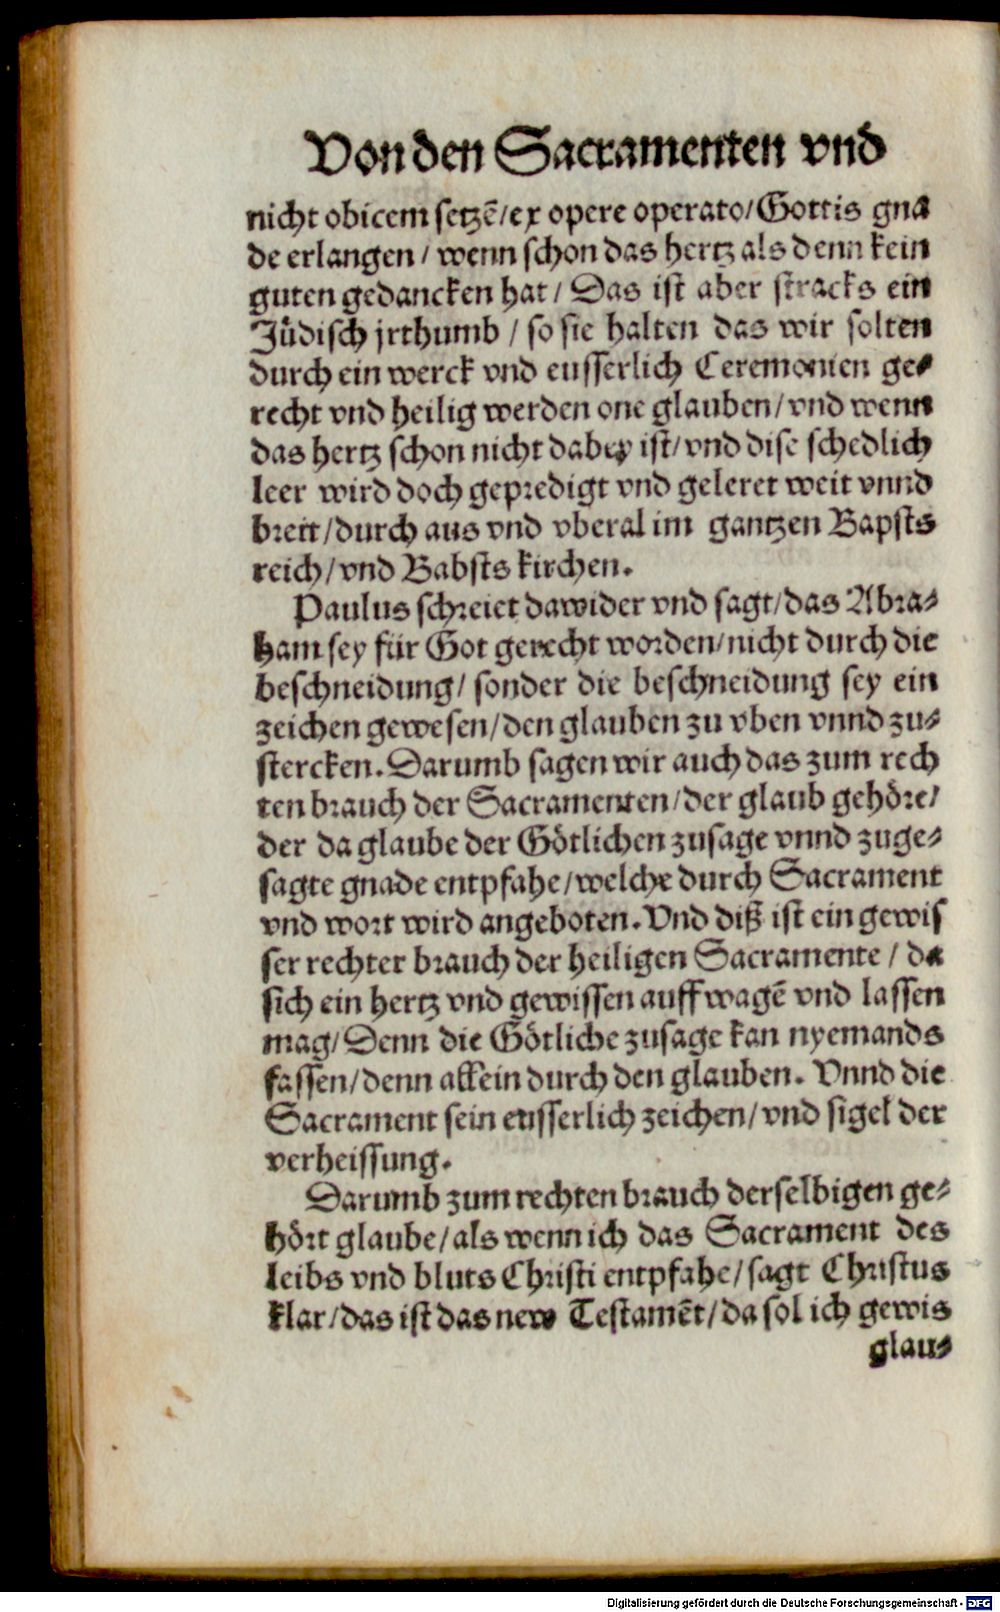 Von den Sacramenten vnd
nicht obicem setzē/ex opere operato/Gottis gna
de erlangen/ wenn schon das hertz als denn kein
guten gedancken hat/ Das ist aber stracks ein
Jüdisch jrthumb/ so sie halten das wir solten
durch ein werck vnd eusserlich Ceremonien ge⸗
recht vnd heilig werden one glauben/vnd wenn
das hertz schon nicht dabey ist/vnd dise schedlich
leer wird doch gepredigt vnd geleret weit vnnd
breit/durch aus vnd vberal im gantzen Bapsts
reich/vnd Babsts kirchen.
Paulus schreiet dawider vnd sagt/das Abra⸗
ham sey für Got gerecht worden/nicht durch die
beschneidung/ sonder die beschneidung sey ein
zeichen gewesen/den glauben zu vben vnnd zu⸗
stercken. Darumb sagen wir auch das zum rech
ten brauch der Sacramenten/der glaub gehöre/
der da glaube der Götlichen zusage vnnd zuge⸗
sagte gnade entpfahe/welche durch Sacrament
vnd wort wird angeboten. Vnd diß ist ein gewis
ser rechter brauch der heiligen Sacramente/ da
sich ein hertz vnd gewissen auff wagē vnd lassen
mag/ Denn die Götliche zusage kan nyemands
fassen/denn allein durch den glauben. Vnnd die
Sacrament sein eusserlich zeichen/vnd sigel der
verheissung.
Darumb zum rechten brauch derselbigen ge⸗
hört glaube/als wenn ich das Sacrament des
leibs vnd bluts Christi entpfahe/sagt Christus
klar/das ist das new Testamēt/da sol ich gewis
glau⸗
Digitalisierung gefördert durch die Deutsche Forschungsgemeinschaft - DFG